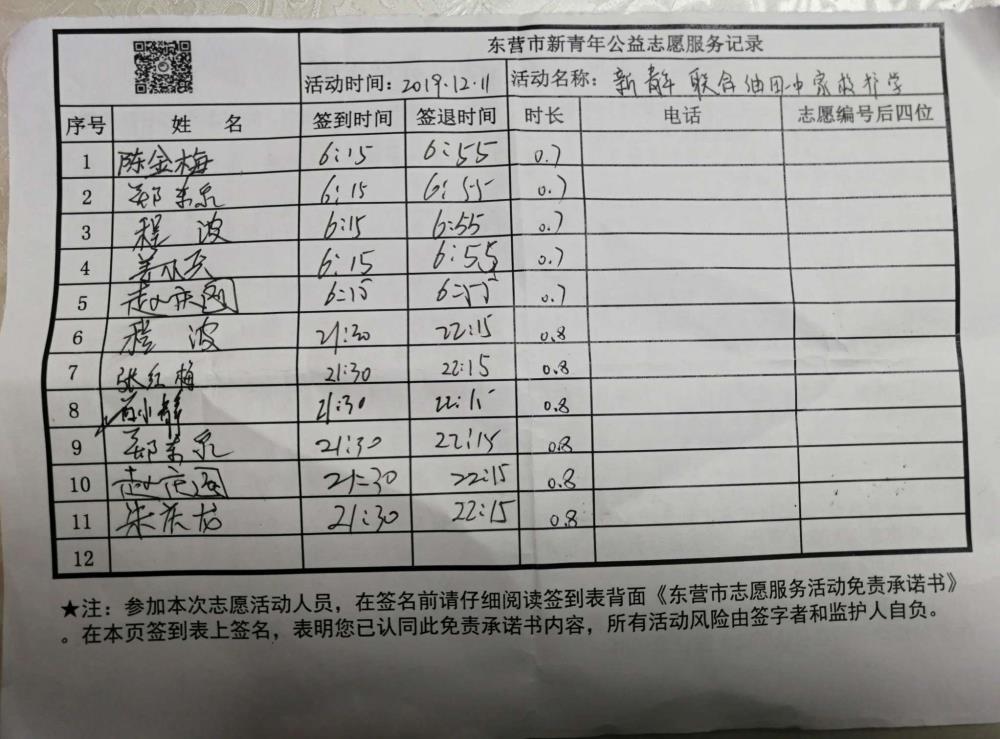 东营市新青年公益志愿服务记录
活动时间：2019.12.11 活动名称：新青年联合油田中家校护学
序号 姓 名 签到时间 签退时间 时长 电话 志愿编号后四位
1 陈金梅 6:15 6:55 0.7
2 郑东泉 6:15 6:55 0.7
3 程波 6:15 6:55 0.7
4 6:15 6:55 0.7
5 赵庆国 6:15 6:55 0.7
6 程波 21:30 22:15 0.8
7 张红梅 21:30 22:15 0.8
8 小静 21:30 22:15 0.8
9 郑东泉 21:30 22:15 0.8
10 赵庆国 21:30 22:15 0.8
11 朱庆龙 21:30 22:15 0.8
12
★注：参加本次志愿活动人员，在签名前请仔细阅读签到表背面《东营市志愿服务活动免责承诺书》
。在本页签到表上签名，表明您已认同此免责承诺书内容，所有活动风险由签字者和监护人自负。